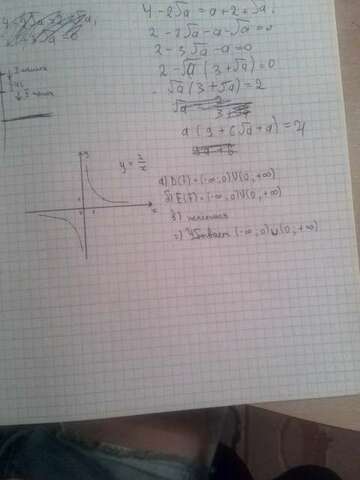 4 - 2√a = a + 2 + √a
2 - 2√a - a - √a = 0
2 - 3√a - a = 0
2 - √a (3 + √a) = 0
√a (3 + √a) = 2
a (9 + 6√a + a) = 4
y = 2/x
а) D(f) = (-∞; 0)U(0; +∞)
б) E(f) = (-∞; 0)U(0; +∞)
в) нечетная
г) Убывает (-∞; 0)U(0; +∞)